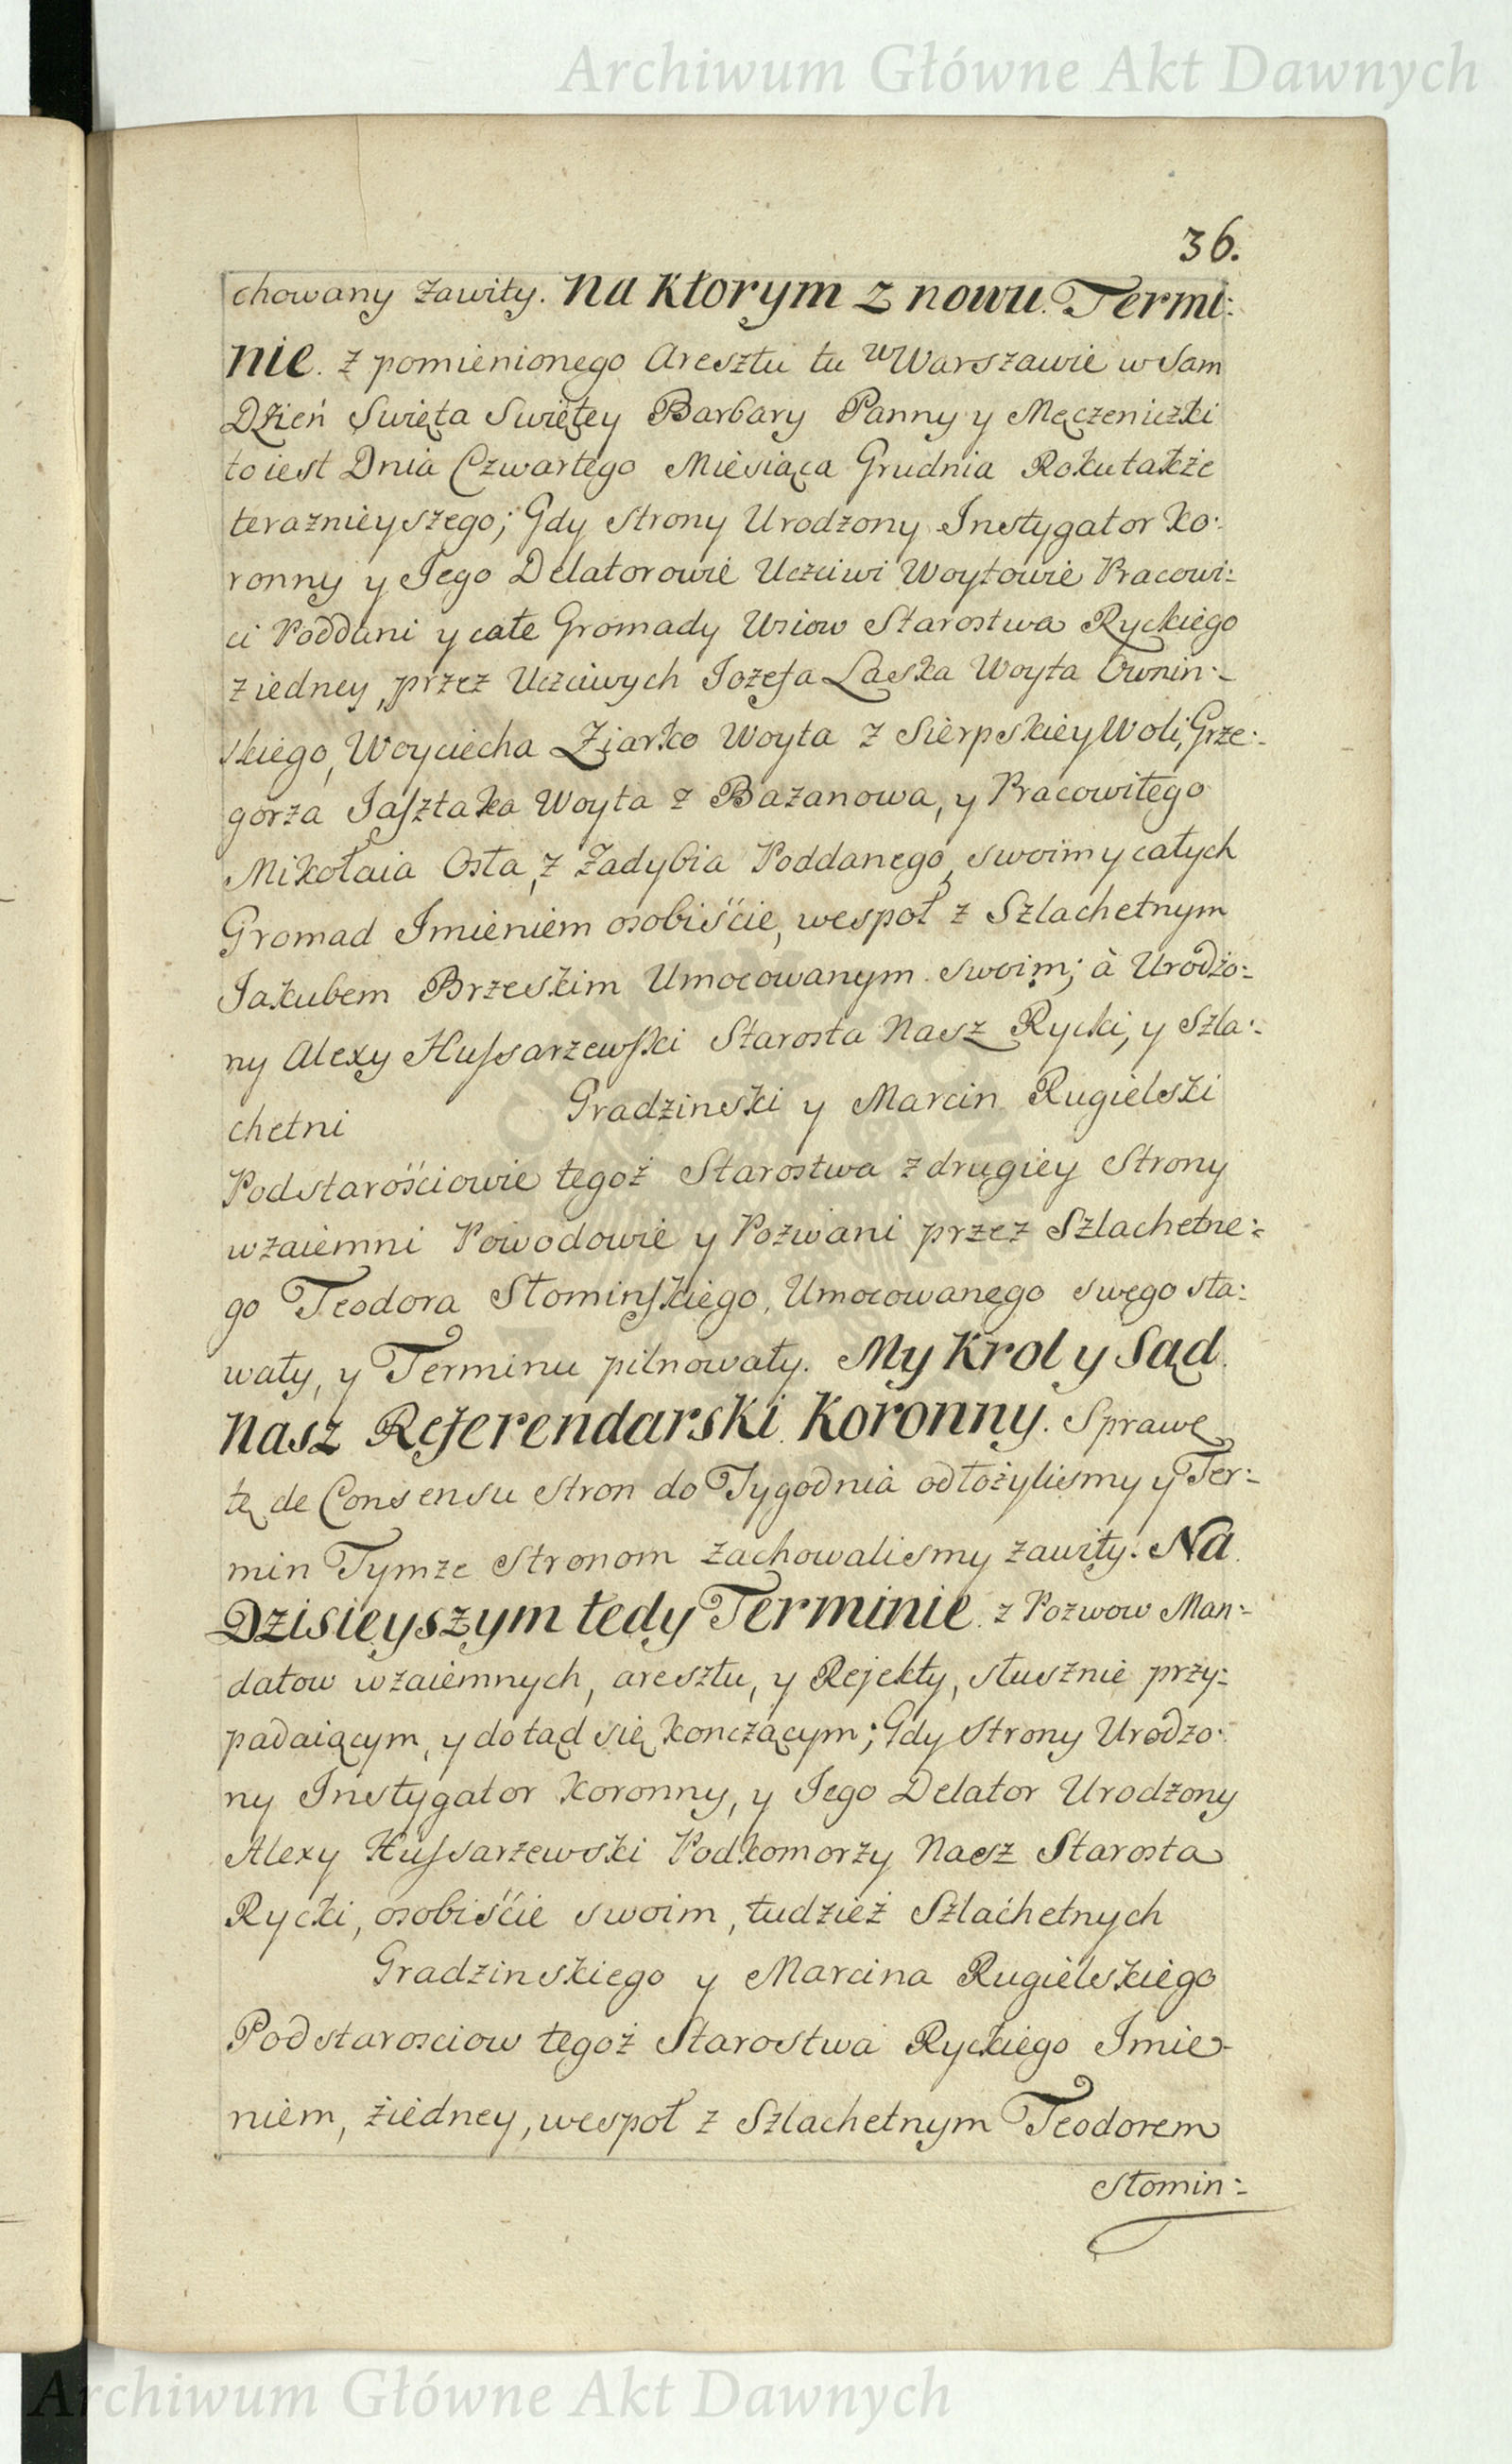 Archiwum Główne Akt Dawnych
36.
chowany zawity. Na Ktorym z nowu. Termi:
nie. z pomienionego Aresztu tu w Warszawie w Sam
Dzień Swięta Swiętey Barbary Panny y Męczeniczki
to iest Dnia Czwartego Miesiąca Grudnia Roku także
teraznieyszego; Gdy Strony Urodzony Instygator Ko:
ronny y Jego Delatorowie Uczciwi Woytowie Pracowi:
ci Poddani y całe Gromady Wsiow Starostwa Ryckiego
z iedney, przez Uczciwych Jozefa Laska Woyta Ownin:
skiego, Woyciecha Ziarko Woyta z Sierpskiey Woli, Grze:
gorza Jasztaka Woyta z Bazanowa, y Pracowitego
Mikołaia Osła, z Zadybia Poddanego, swoim y całych
Gromad Imieniem osobiście, wespoł z Szlachetnym
Jakubem Brzeskim Umocowanym swoim; à Urodzo:
ny Alexy Hussarzewski Starosta Nasz Rycki, y Szla:
chetni Gradzinski y Marcin Rugielski
Podstarościowie tegoż Starostwa z drugiey Strony
wzaiemni Powodowie y Pozwani przez Szlachetne:
go Teodora Słominskiego, Umocowanego swego sta:
wały, y Terminu pilnowały. My Krol y Sąd
Nasz Referendarski Koronny. Sprawę
tę de Consensu stron do Tygodnia odłożylismy y Ter:
min Tymze Stronom zachowalismy zawity. Na
Dzisieyszym tedy Terminie z Pozwow Man:
datow wzaiemnych, aresztu, y Rejekty, słusznie przy:
padaiącym, y dotąd się konczącym; Gdy Strony Urodzo:
ny Instygator Koronny, y Jego Delator Urodzony
Alexy Hussarzewski Podkomorzy Nasz Starosta
Rycki, osobiście swoim, tudzież Szlachetnych
Gradzinskiego y Marcina Rugielskiego
Podstarosciow tegoż Starostwa Ryckiego Imie-
niem, ziedney, wespoł z Szlachetnym Teodorem
Słomin:
Archiwum Główne Akt Dawnych